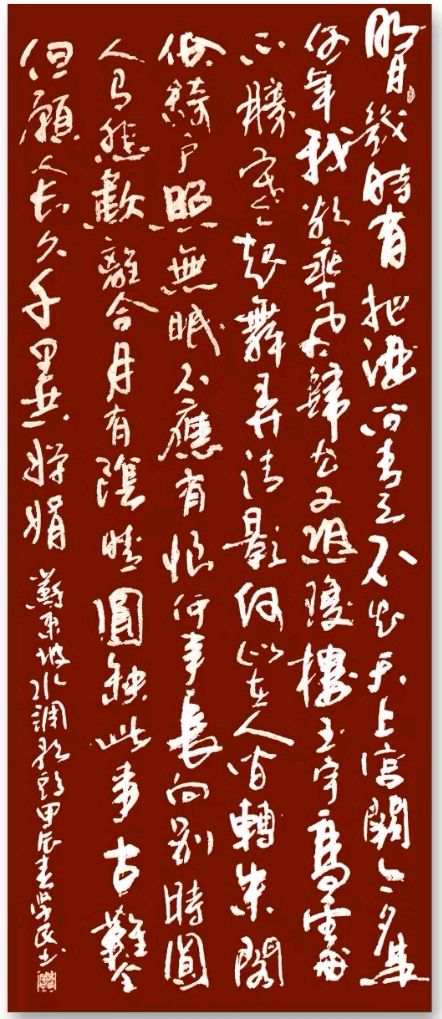 明月幾時有把酒問青天不知天上宮闕今夕是
何年我欲乘風歸去又恐瓊樓玉宇高處
不勝寒起舞弄清影何似在人間轉朱閣
低綺戶照無眠不應有恨何事長向別時圓
人有悲歡離合月有陰晴圓缺此事古難全
但願人長久千里共嬋娟
蘇東坡水調歌頭甲辰春學民書